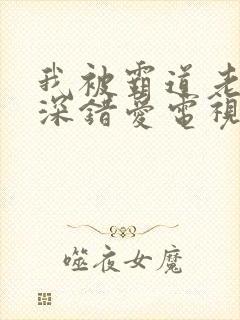 我被霸道老
深錯愛電視
噬夜女魔